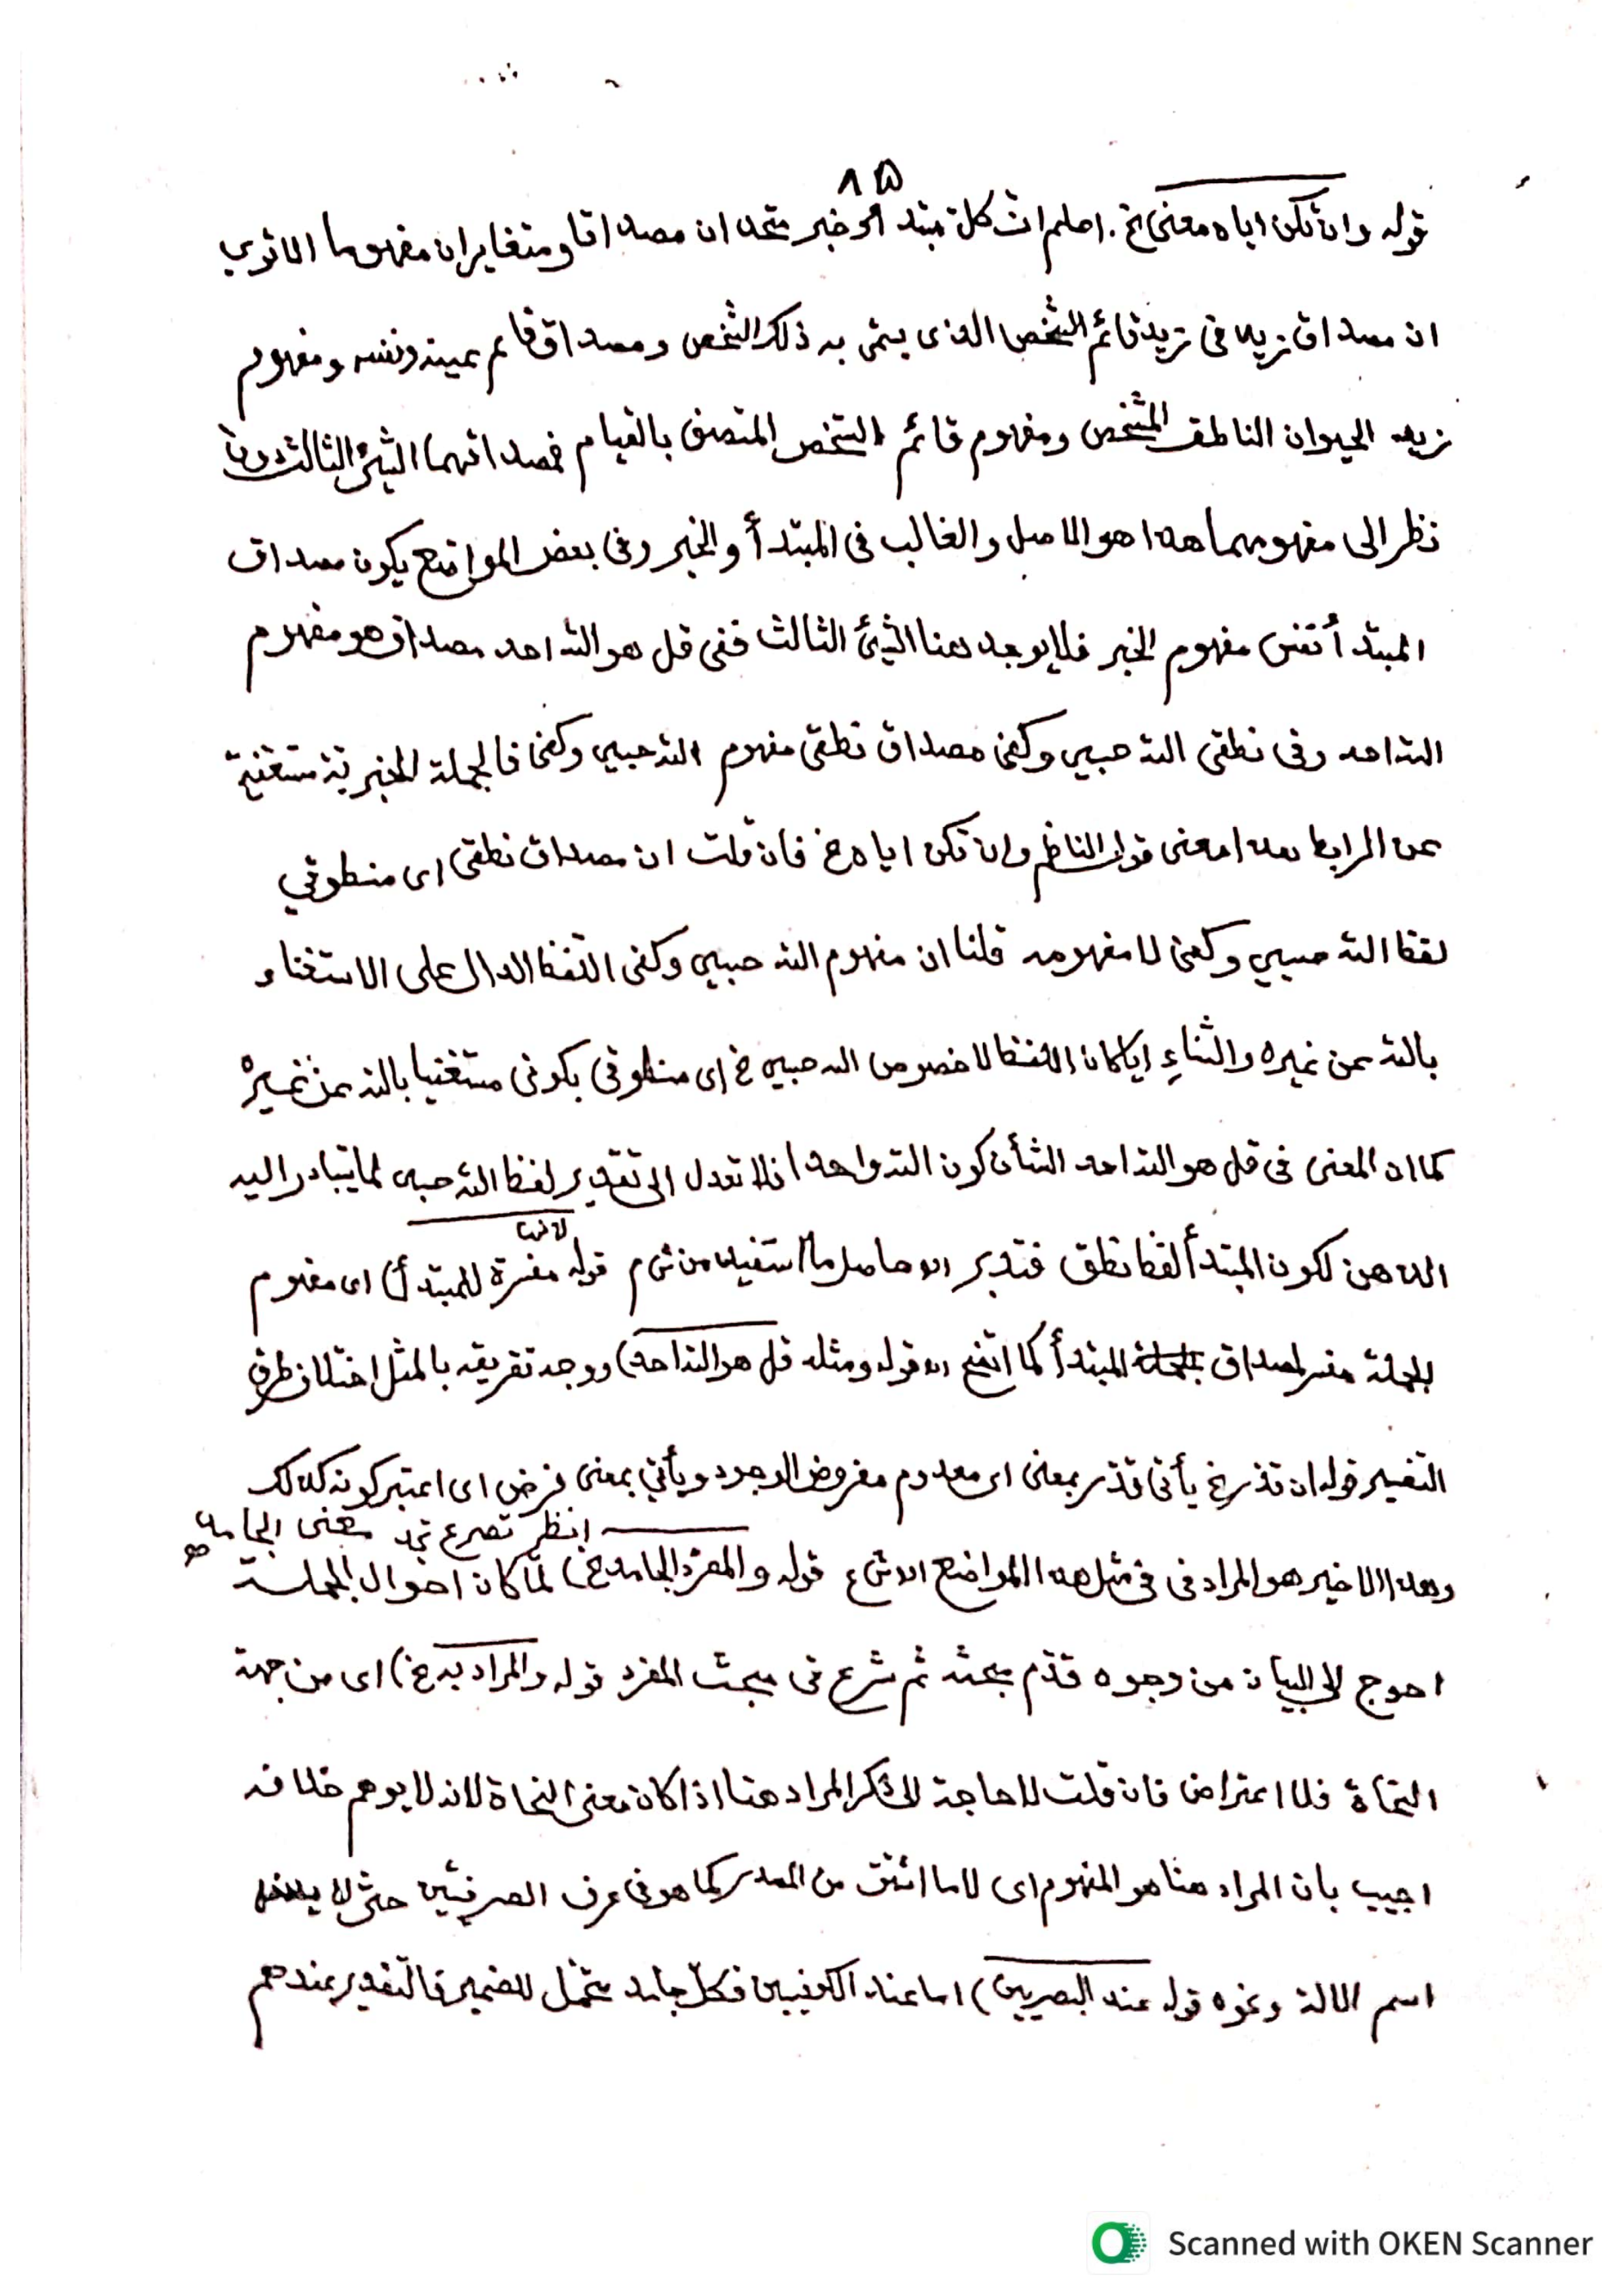 ٨٥
قوله وان تكن اياه معنى الخ. اعلم ان كل مبتدأ وخبر متحدان مصداقا ومتغايران مفهوما الا ترى
ان مصداق زيد فى زيد قائم الشخص الذى يسمى به ذلك الشخص ومصداق قائم عينه ونفسه ومفهوم
زيد الحيوان الناطق المشخص ومفهوم قائم الشخص المتصف بالقيام فمصداقهما الشئ الثالث دون
نظر الى مفهومهما هذا هو الاصل والغالب فى المبتدأ والخبر وفى بعض المواضع يكون مصداق
المبتدأ نفس مفهوم الخبر فلا يوجد هنا الشئ الثالث ففى قل هو الله احد مصداق هو مفهوم
الله احد وفى نطقى الله حسبي وكفى مصداق نطقى مفهوم الله حسبي وكفى فالجملة الخبرية مستغنية
عن الرابط هذا معنى قول الناظم وان تكن اياه الخ فان قلت ان مصداق نطقى اى منطوقي
لفظ الله حسبي وكفى لا مفهومه قلنا ان مفهوم الله حسبي وكفى اللفظ الدال على الاستغناء
بالله عن غيره والثناءِ ايا كان اللفظ لا خصوص الله حسبي الخ اى منطوقى بكونى مستغنيا بالله عن غيره
كما ان المعنى فى قل هو الله احد الشأن كون الله واحدا فلا تعدل الى تقدير لفظ الله حسبى لما يتبادر اليه
الذهن لكون المبتدأ لفظ نطق فتدبر اه حاصل ما استفيد من ش م قوله مفسرة للمبتدأ) اى مفهوم
لانها
الجملة مفسر لمصداق المبتدأ كما اتضح اه قوله ومثله قل هو الله احد) ووجه تفريقه بالمثل اختلاف طرفى
التفسير قوله ان قدر الخ يأتى قدّر بمعنى اى معدوم مفروض الوجود ويأتي بمعنى فرض اى اعتبر كونه كذلك
انظر تصرع تجد معنى الجامد
وهذا الاخير هو المراد فى فى مثل هذا المواضع اه ش ع قوله والمفرد الجامد الخ) لمّا كان احوال الجملة
احوج الى البيان من وجوه قدّم بحثه ثم شرع فى مبحث المفرد قوله والمراد به الخ) اى من جهة
النحاة فلا اعتراض فان قلت لا حاجة الى ذكر المراد هنا اذا كان معنى النحاة لانه لا يوهم خلافه
اجيب بان المراد هنا هو المفهوم اى لا ما اشتق من المصدر كما هو فى عرف الصرفيّين حتى لا
اسم الالة ونحوه قوله عند البصريين) اما عند الكوفيين فكلّ جامد متحمّل للضمير فالتقدير عندهم
Scanned with OKEN Scanner